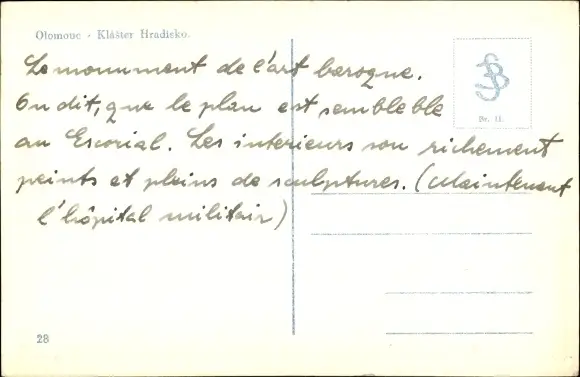 Olomouc - Klášter Hradisko.
Le monument de l'art baroque.
On dit, que le plan est sembleble
au Escorial. Les interieurs son richement
peints et pleins de sculptures. (Maintenant
l'hôpital militair)
Nr. 11.
28